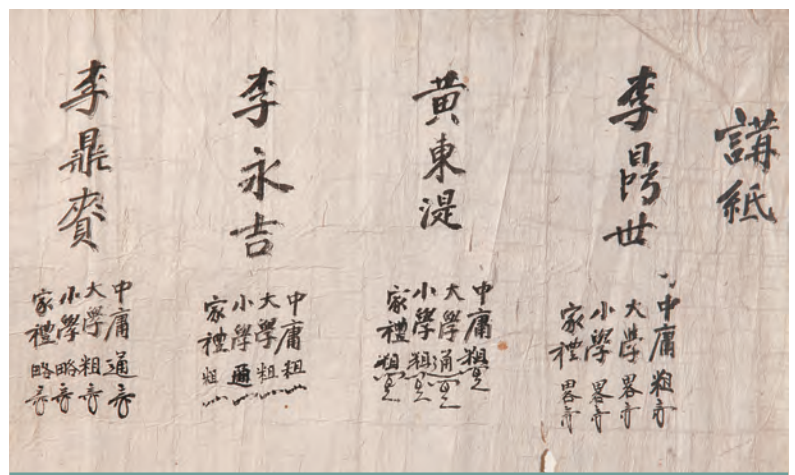 講紙
李 世
中庸 粗
大學 畧
小學 畧
家禮 畧
黃東湜
中庸 粗
大學 通
小學 粗
家禮 粗
李永吉
中庸 粗
大學 粗
小學 通
家禮 粗
李鼎賚
中庸 通
大學 粗
小學 略
家禮 略